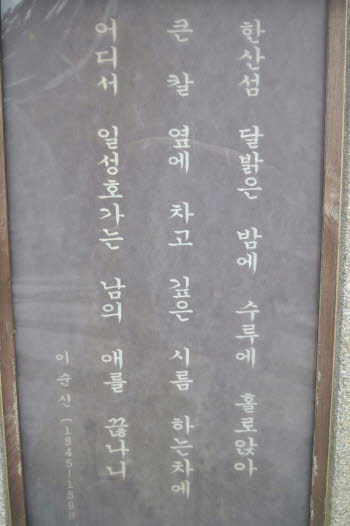 한산섬 달밝은 밤에 수루에 홀로앉아
큰 칼 옆에 차고 깊은 시름 하는차에
어디서 일성호가는 남의 애를 끊나니
이순신 (1545-1598